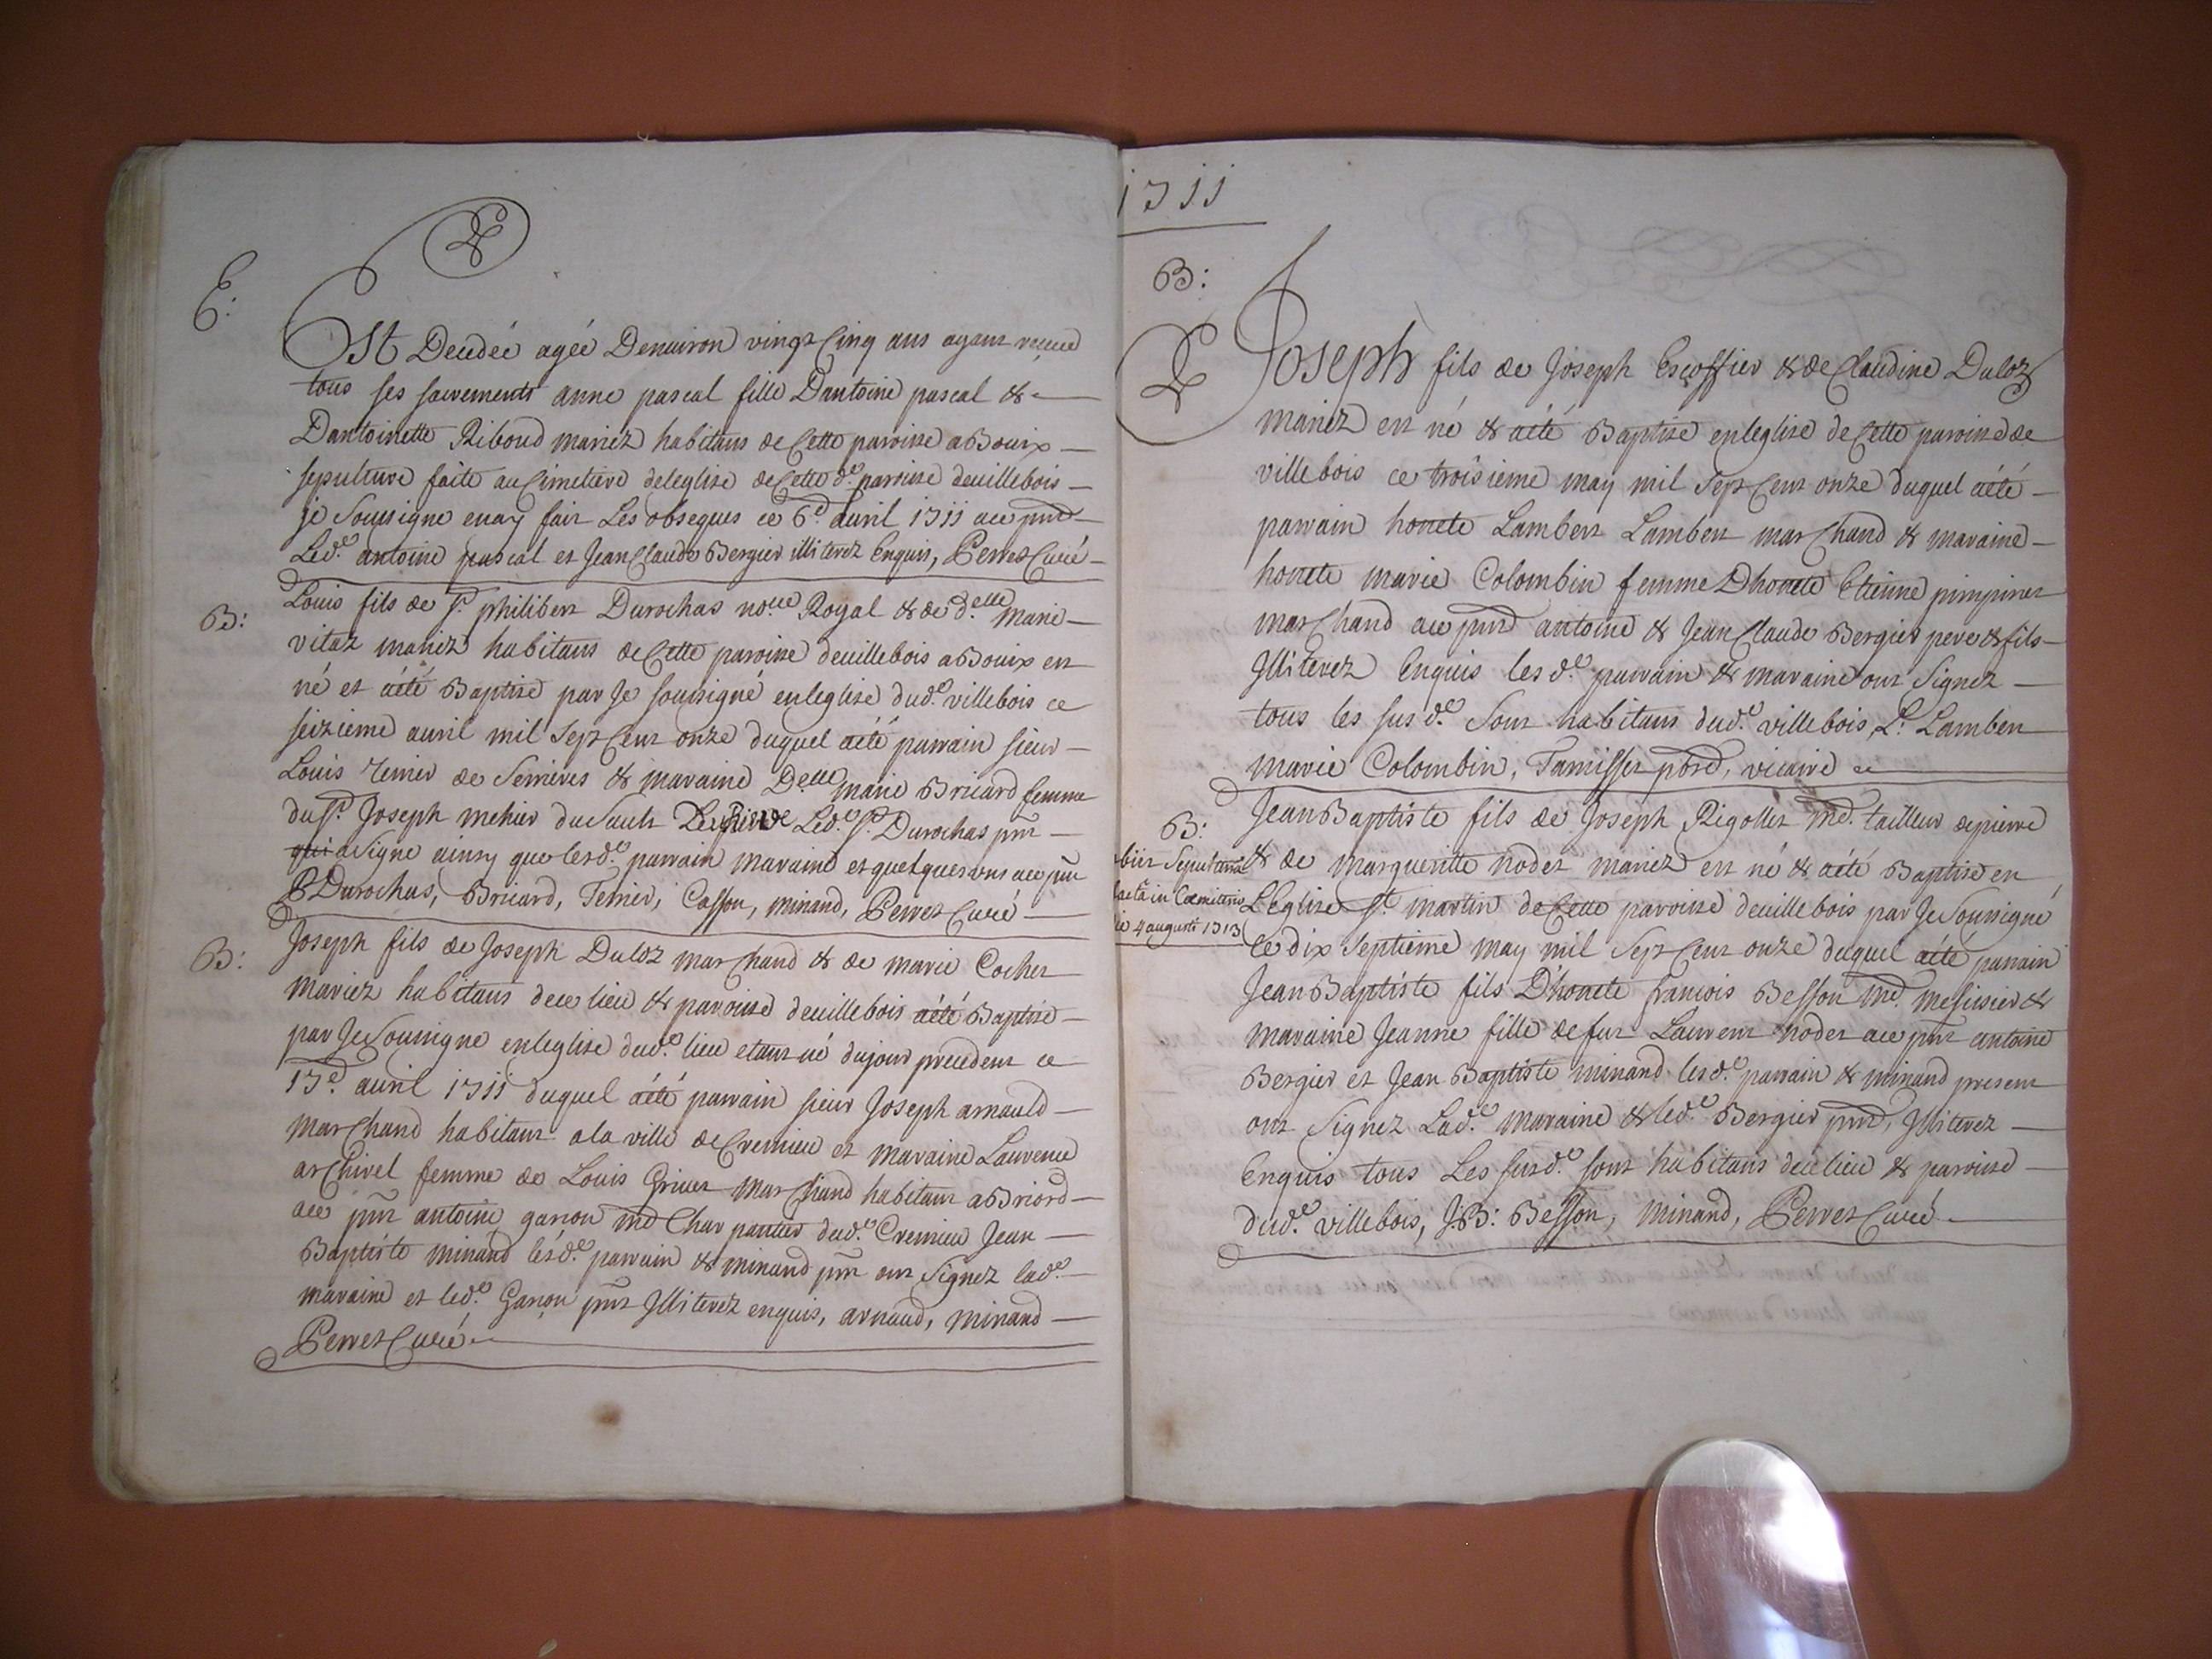 E:
Est Decedéé agéé Denuiron vingt Cinq ans ayant receue
tous ses sacrements anne pascal fille Dantoine pascal &
Dantoinette Riboud mariéz habitans de Cette paroisse a Bouix
sepulture faite au Cimetiere de leglise de Cette de. paroisse de uillebois
je Soussigne en ay fait Les obseques ce 6e. auril 1711 auec pnts
Led.e antoine pascal et Jean Claude Bergier illiterez Enquis, Perret Curé
B:
Louis fils de sr. philibert Durochas nore Royal & de d.elle Marie
vitaz mariéz habitans de Cette paroisse de uillebois a Bouix est
né et áété Baptisé par Je soussigné en leglise dud.e villebois ce
seizieme auril mil Sept Cent onze duquel áété parrain sieur
Louis Terrier de Serrieres & maraine D.elle marie Bricard femme
du sr. Joseph mehier du Sault Led.e sr. Durochas pnt
qui a Signe ainsy que lesd.e parrain maraine et quelques uns auec pnt
P Durochas, Bricard, Terrier, Casson, minand, Perret Curé
B:
Joseph fils de Joseph Duloz marchand & de marie Cochet
mariez habitans de ce lieu & paroisse de uillebois áété Baptisé
par Je Soussigne en leglise dud.e lieu etant né du jour precedent ce
17e. auril 1711 duquel áété parrain sieur Joseph arnauld
Marchand habitant a la ville de Cremieu et maraine Laurence
archivel femme de Louis Griuet Marchand habitant a Briord
auec pnt antoine garson md Charpantier dud.e Cremieu Jean
Baptiste minand lesd.e parrain & minand pnt ont Signez lad.e
maraine et led.e Garson pnt Illiterez enquis, arnaud, minand
Perret Curé
1711
B:
Joseph fils de Joseph Escoffier & de Claudine Duloz
mariéz est né & áété Baptisé en leglise de Cette paroisse de
villebois ce troisieme may mil Sept Cent onze duquel áété
parrain honete Lambert Lambert marchand & maraine
honete marie Colombin femme Dhonete Etienne pimpinet
marchand auec pnts antoine & Jean Claude Bergier pere & fils
Illiterez Enquis les d.e parrain & maraine ont Signez
tous les sus d.e Sont habitans dud.e villebois, L. Lambert
marie Colombin, Tamisser pbre, vicaire
B:
Jean Baptiste fils de Joseph Rigollet Md. tailleur de pierre
& de Margueritte nodet mariéz est né & áété Baptisé en
L'Eglise St. martin de Cette paroisse de uillebois par Je Soussigné
ce dix Septieme may mil Sept Cent onze duquel áété parrain
Jean Baptiste fils D'honete francois Besson Md. Messissier &
maraine Jeanne fille de fut Laurent nodet auec pnt antoine
Bergier et Jean Baptiste minand lesd.e parrain & minand present
ont Signez Lad.e Maraine & led.e Bergier pnts, Illiterez
Enquis tous Les susd.e sont habitans de ce lieu & paroisse
dud.e villebois, J: B: Besson, Minand, Perret Curé
biit Sepultura
facta in Cœmiterio
die 4 augusti 1713